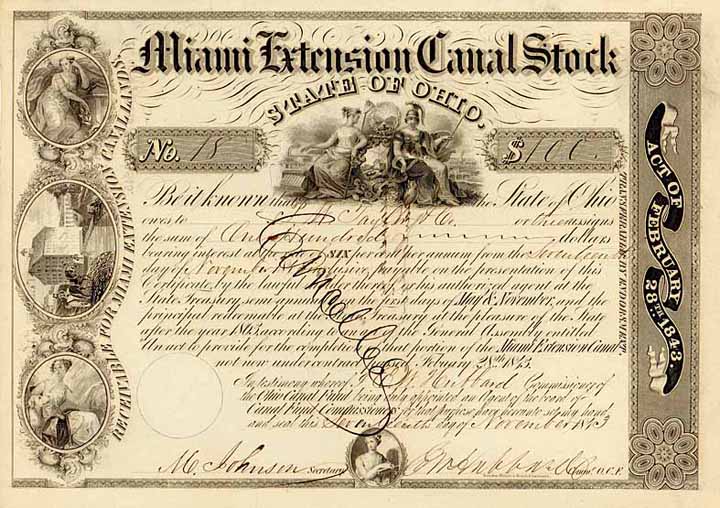 Miami Extension Canal Stock
STATE OF OHIO.
No. 18
$100
Be it known that the State of Ohio
owes to or assigns
the sum of One Hundred dollars
bearing interest at six per centum per annum from the Seventeenth
day of November inclusive, payable on the presentation of this
Certificate, by the lawful or thereof his authorized agent at the
State Treasury semi annually on the first days of May & November, and the
principal redeemable at the Treasury at the pleasure of the State
after the year according to the General Assembly entitled
An act to provide for the completion of that portion of the Miami Extension Canal
not now under contract passed February 28th 1843.
In testimony whereof I Hubbard Commissioner of
the Ohio Canal Fund being duly appointed an Agent of the board of
Canal Fund Commissioners for that purpose have hereunto set my hand
and seal this Seventeenth day of November 1843
Cancelled
M. Johnson Secretary
Hubbard Commr. O.C.F.
RECEIVABLE FOR MIAMI EXTENSION CANAL LANDS
TRANSFERABLE BY ENDORSEMENT
ACT OF FEBRUARY 28TH 1843.